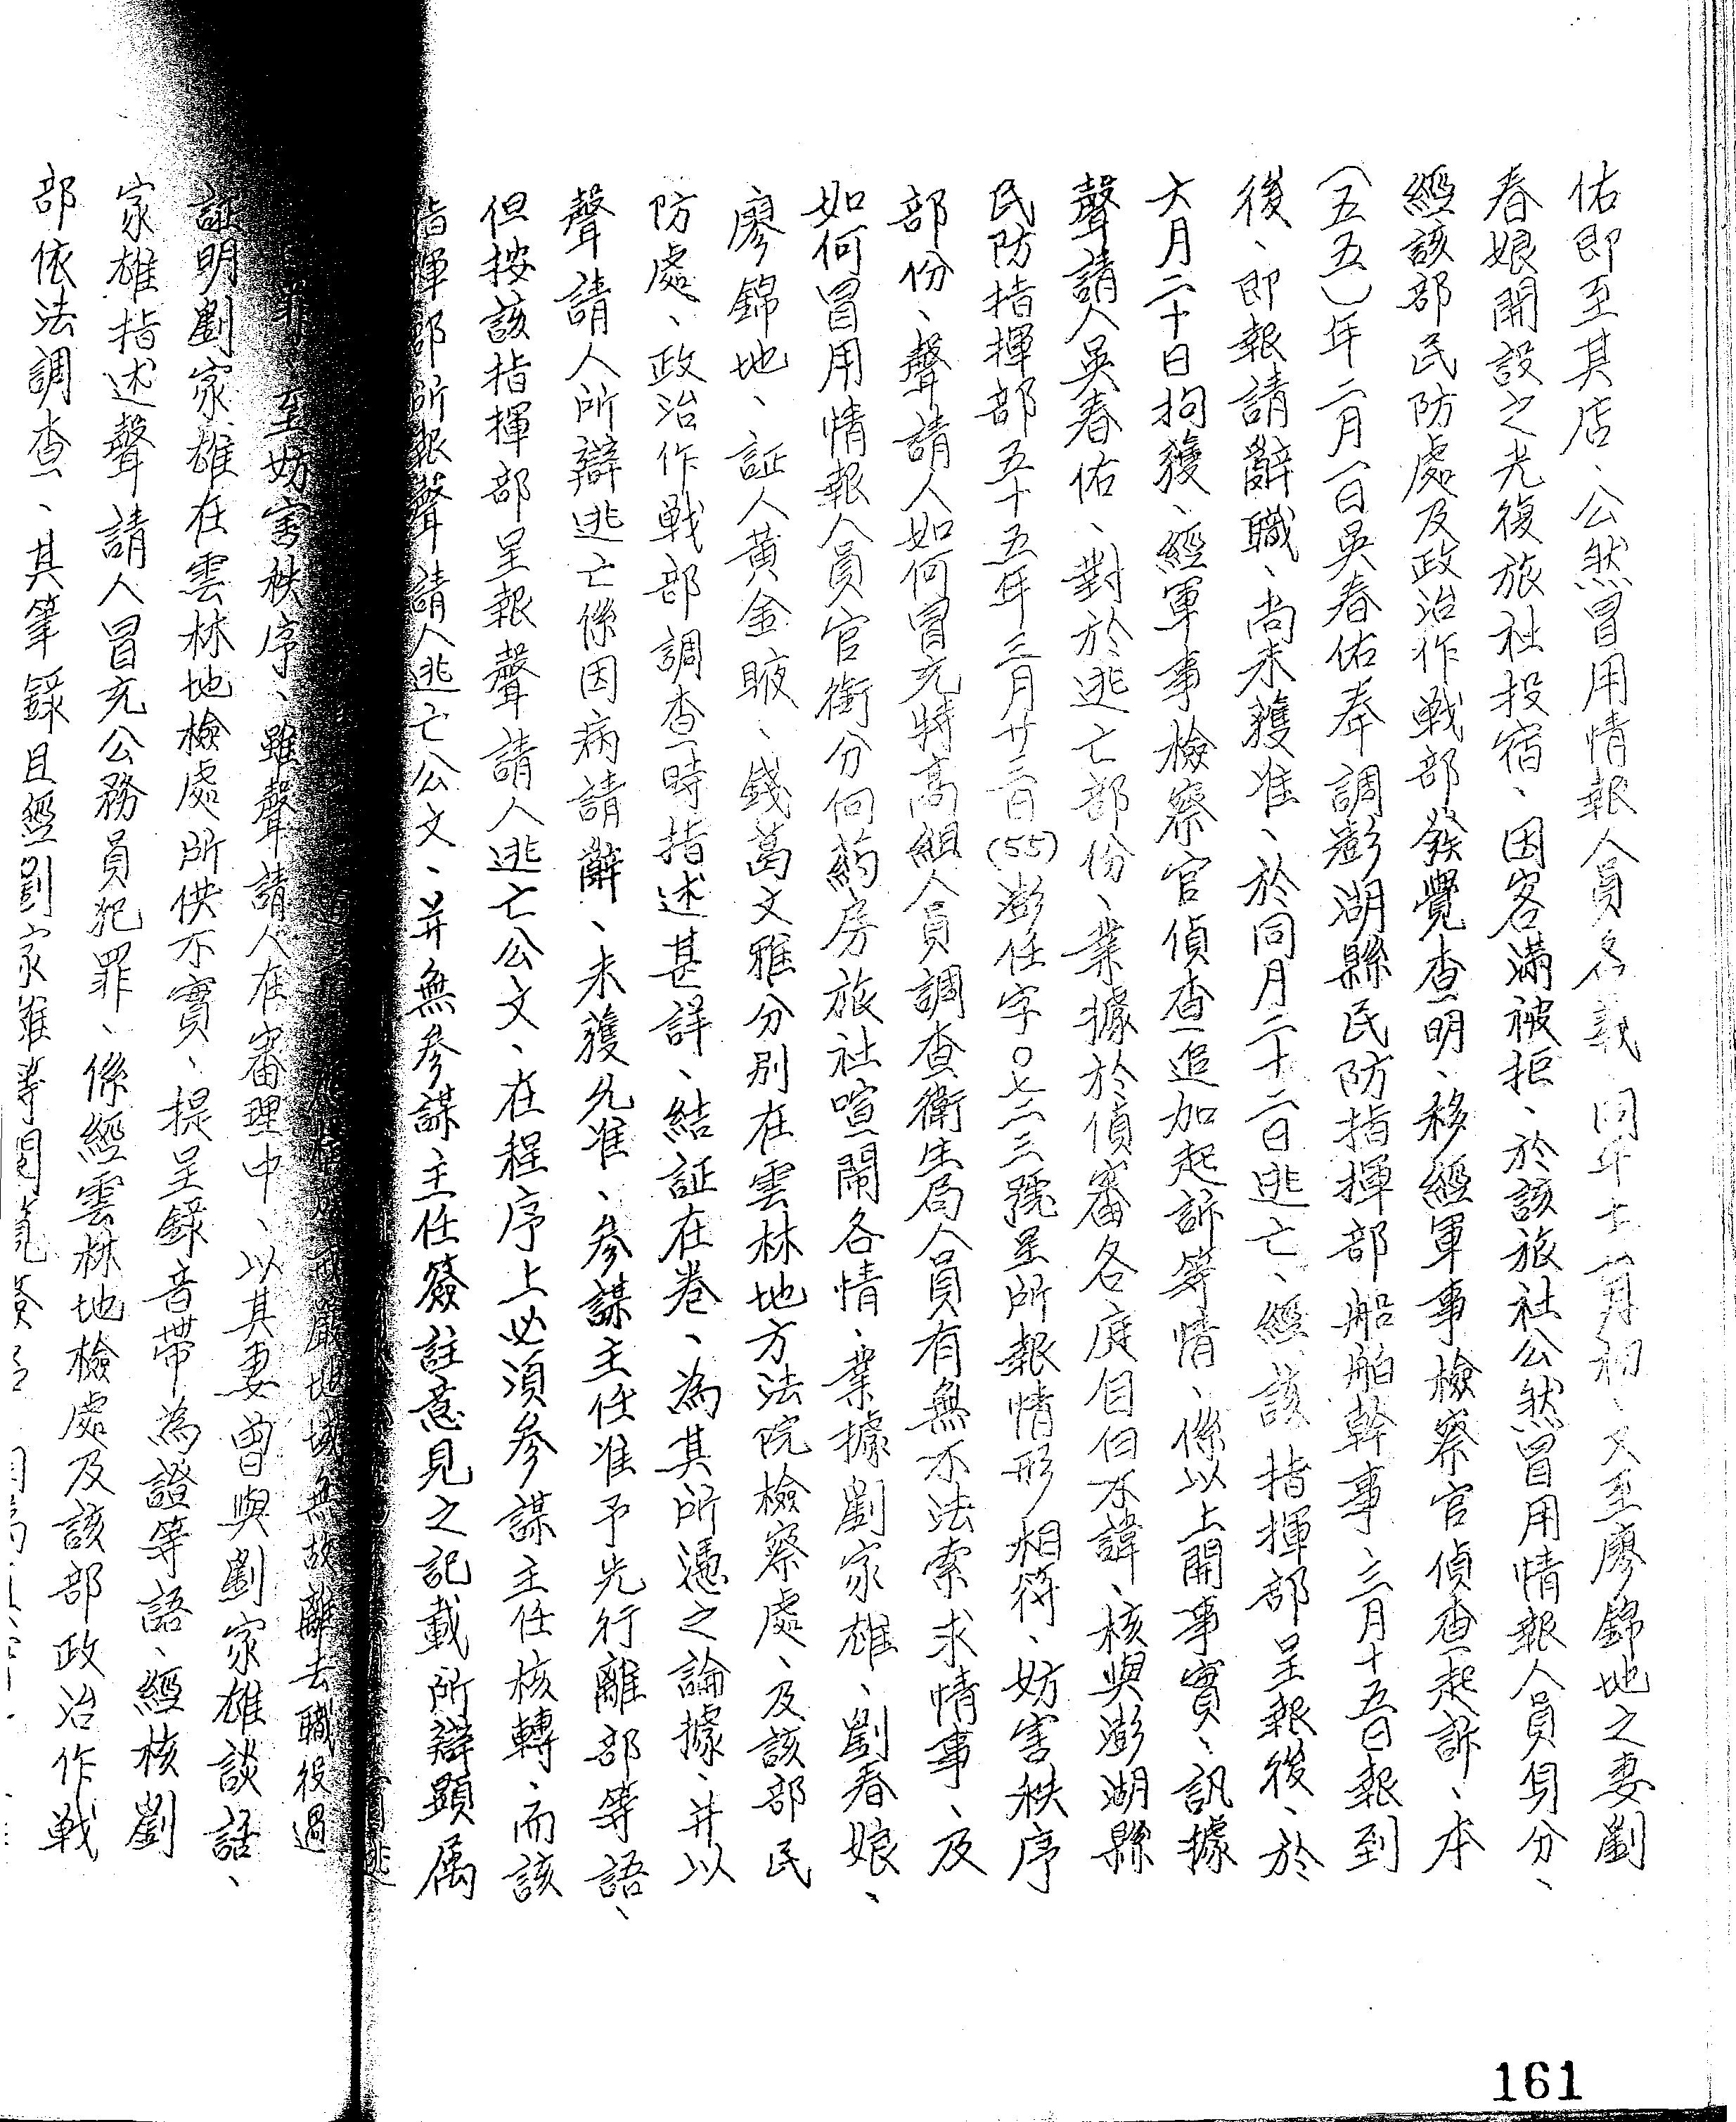 佑即至其店、公然冒用情報人員名義 同年十一月初、又至廖錦地之妻劉
春娘開設之光復旅社投宿、因客滿被拒、於該旅社公然冒用情報人員身分、
經該部民防處及政治作戰部發覺查明、移經軍事檢察官偵查起訴、本
(五五)年二月一日吳春佑奉調澎湖縣民防指揮部船舶幹事、三月十五日報到
後、即報請辭職、尚未獲准、於同月二十二日逃亡、經該指揮部呈報後、於
六月二十日拘獲、經軍事檢察官偵查追加起訴等情、係以上開事實、訊據
聲請人吳春佑、對於逃亡部份、業據於偵審各庭自白不諱、核與澎湖縣
民防指揮部五十五年三月廿三日(55)澎任字0七二三號呈所報情形相符、妨害秩序
部份、聲請人如何冒充特高組人員調查衛生局人員有無不法索求情事、及
如何冒用情報人員官銜分向葯房旅社喧鬧各情、業據劉家雄、劉春娘、
廖錦地、証人黃金腋、錢葛文雅分別在雲林地方法院檢察處、及該部民
防處、政治作戰部調查時指述甚詳、結証在卷、為其所憑之論據、并以
聲請人所辯逃亡係因病請辭、未獲允准、參謀主任准予先行離部等語、
但按該指揮部呈報聲請人逃亡公文、在程序上必須參謀主任核轉、而該
指揮部所報聲請人逃亡公文、并無參謀主任簽註意見之記載所辯顯属
逃
戒嚴地域無故離去職役過
罪 至妨害秩序、雖聲請人在審理中、以其妻曾與劉家雄談話、
証明劉家雄在雲林地檢處所供不實、提呈錄音帶為證等語、經核劉
家雄指述聲請人冒充公務員犯罪、係經雲林地檢處及該部政治作戰
部依法調查、其筆錄且經劉家雄等閱覽
161